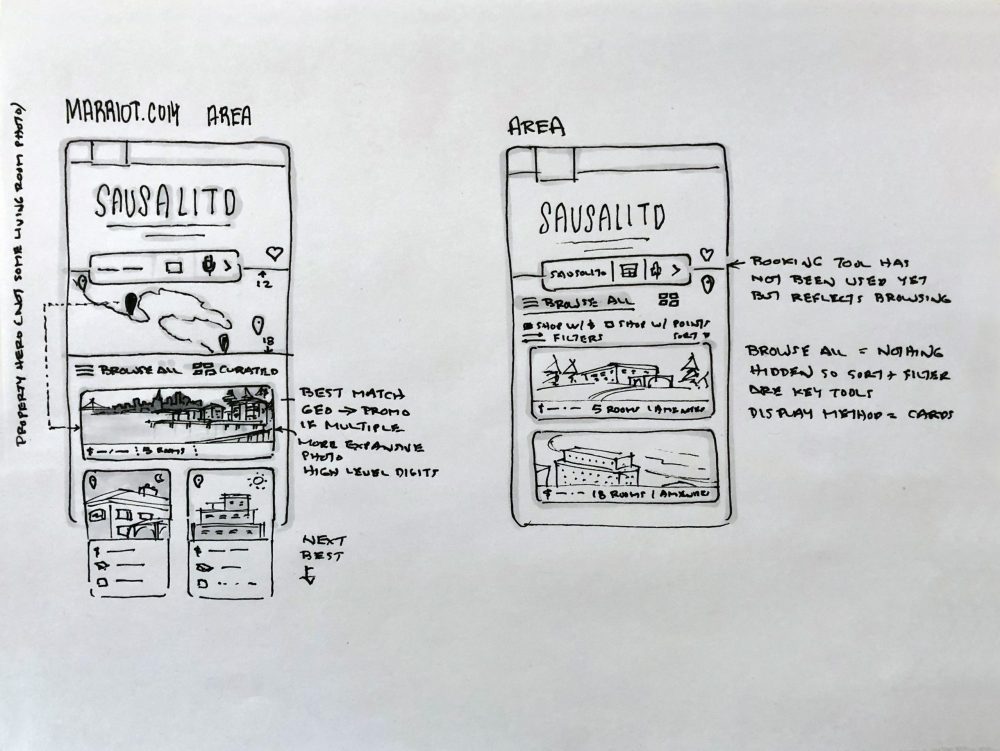 MARRIOT.COM AREA
PROPERTY HERO (NOT SOME LIVING ROOM PHOTO)
SAUSALITO
12
18
BROWSE ALL CURATED
5 ROOMS
BEST MATCH
GEO → PROMO
IF MULTIPLE
MORE EXPANSIVE
PHOTO
HIGH LEVEL DIGITS
$
$
NEXT
BEST
AREA
SAUSALITO
SAUSALITO
BROWSE ALL
SHOP W/ $ SHOP W/ POINTS
FILTERS SORT
$ 5 ROOMS | AMENITIES
$ 18 ROOMS | AMENITIES
BOOKING TOOL HAS
NOT BEEN USED YET
BUT REFLECTS BROWSING
BROWSE ALL = NOTHING
HIDDEN SO SORT + FILTER
ARE KEY TOOLS
DISPLAY METHOD = CARDS